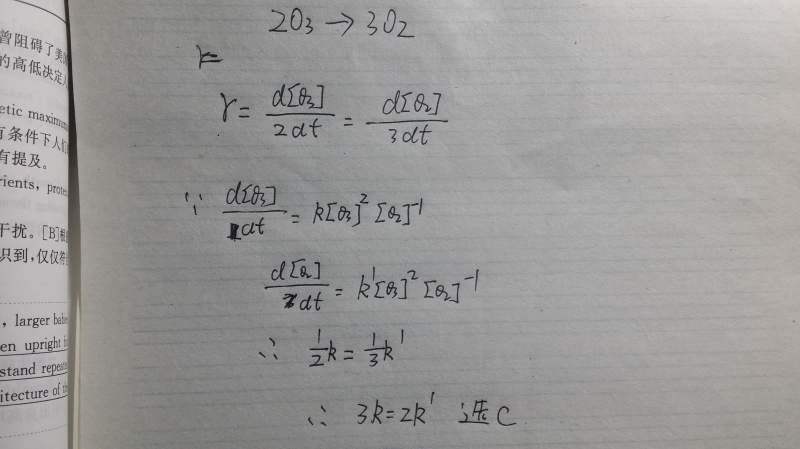 曾阻碍了美
的高低决定
etic maximum
有条件下人们
有提及。
rients, prote
干扰。[B]
识到,仅仅
, larger babe
en upright
stand repeate
itecture of
2O3 → 3O2
r = d[O3]/2dt = d[O2]/3dt
∵ d[O3]/dt = k[O3]^2 [O2]^-1
d[O2]/dt = k'[O3]^2 [O2]^-1
∴ 1/2 k = 1/3 k'
∴ 3k = 2k' 选C